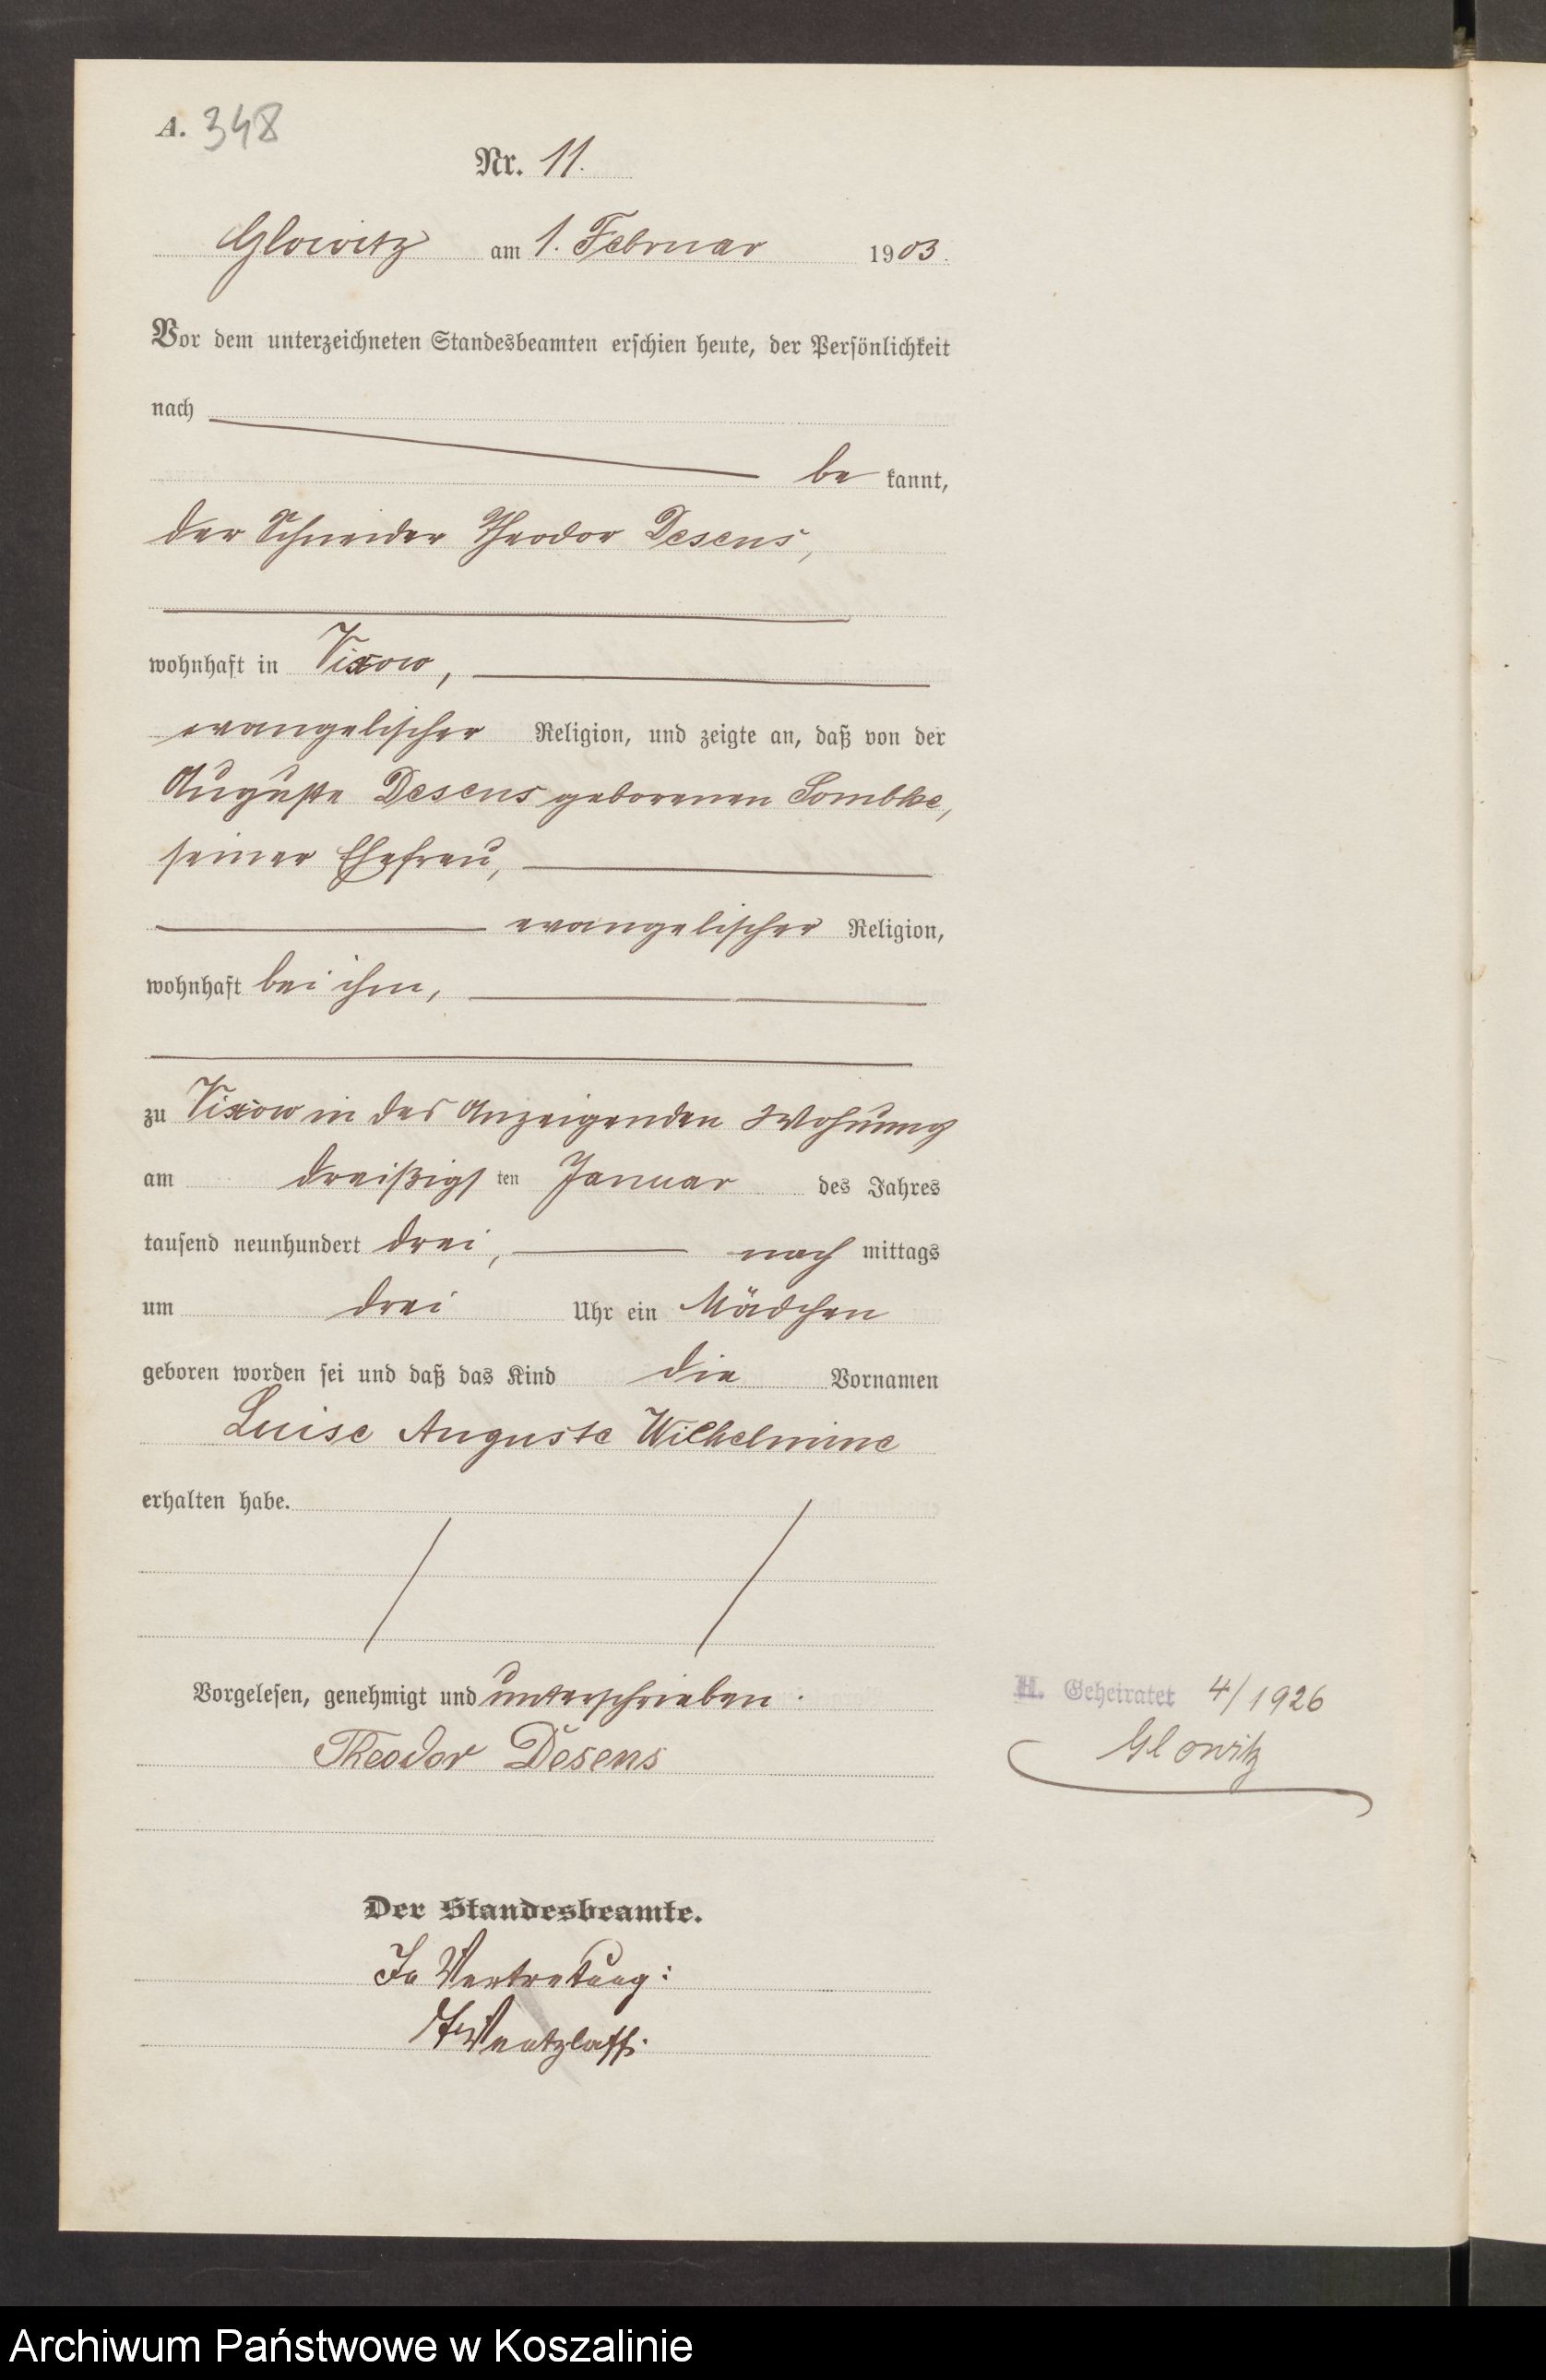 A. 348
Nr. 11.
Glowitz am 1. Februar 1903.
Vor dem unterzeichneten Standesbeamten erschien heute, der Persönlichkeit
nach
be kannt,
der Schneider Theodor Desens,
wohnhaft in Vixow,
evangelischer Religion, und zeigte an, daß von der
Auguste Desens geborenen Sombke,
seiner Ehefrau,
evangelischer Religion,
wohnhaft bei ihm,
zu Vixow in des Anzeigenden Wohnung
am dreißigs ten Januar des Jahres
tausend neunhundert drei, nach mittags
um drei Uhr ein Mädchen
geboren worden sei und daß das Kind die Vornamen
Luise Auguste Wilhelmine
erhalten habe.
Vorgelesen, genehmigt und unterschrieben.
Theodor Desens
H. Geheiratet 4/1926
Glowitz
Der Standesbeamte.
In Vertretung:
Wentzlaff.
Archiwum Państwowe w Koszalinie